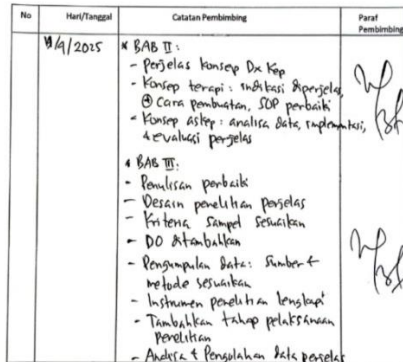 No Hari/Tanggal Catatan Pembimbing Paraf Pembimbing
9/2025 * BAB II:
- Perjelas konsep Dx Kep
- Konsep terapi: indikasi diperjelas,
⊕ Cara pembuatan, SOP perbaiki
- Konsep askep: analisa data, implementasi,
& evaluasi perjelas
* BAB III:
- Penulisan perbaiki
- Desain penelitian perjelas
- Kriteria sampel sesuaikan
- DO ditambahkan
- Pengumpulan data: Sumber &
metode sesuaikan
- Instrumen penelitian lengkapi
- Tambahkan tahap pelaksanaan
penelitian
- Analisa & Pengolahan data perjelas